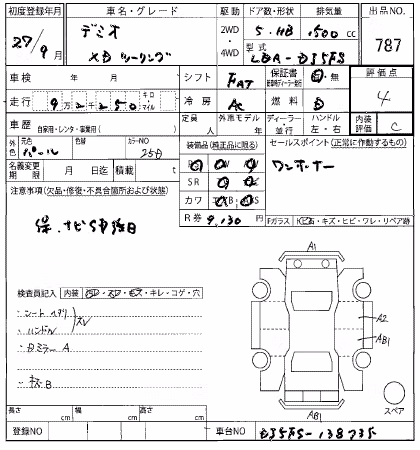 初度登録年月 車名・グレード 駆動 ドア数・形状 排気量 出品NO.
27/9月 デミオ XDツーリング 2WD・4WD 5・HB 1500cc 787
型式 LDA-DJ5FS
車検 年 月 シフト FAT 保証書 有・無 評価点 4
走行 9万2千250 キロ マイル 冷房 AC 燃料 D
車歴 自家用・レンタ・事業用( ) 定員 人 外車モデル 年 ディーラー・並行 ハンドル 左・右 内装評価 C
外色 元色 パール 色替 カラーNO 25D 装備品(純正品に限る) セールスポイント(正常に作動するもの)
名義変更期限 月 日迄 積載 t SR ワンオーナー
注意事項(欠品・修復・不具合箇所および状態) カワ
保、ナビSD後日 R券 9,130円
Fガラス キズ・ヒビ・ワレ・リペア跡
検査員記入 内装 ヨゴレ・スレ・キズ・キレ・コゲ・穴
・シート ヘタリ
・ハンドル スレ
・Dミラー A
・キズB
A1
A2
AB1
AB1
スペア
長さ cm 幅 cm 高さ cm
登録NO 車台NO DJ5FS-138735